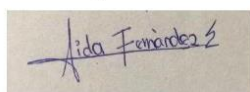 Aida Fernández